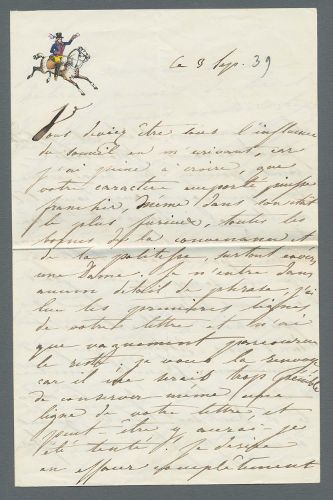 Ce 3 Sep. 39
Vous deviez être sous l'influence
du sommeil en m'écrivant, car
j'ai peine à croire, que
votre caractère emporté puisse
franchir, même dans son état
le plus furieux, toutes les
bornes de la convenance et
de la politesse, surtout envers
une Dame. Je n'entre dans
aucun détail de phrase, j'ai
lu les premières lignes
de votre lettre et n'ai
que vaguement parcouru
le reste; je vous la renvoye
car il me serait trop pénible
de conserver même une
ligne de votre lettre, et
peut être y aurai-je
été tenté. Je désire
en effacer complètement